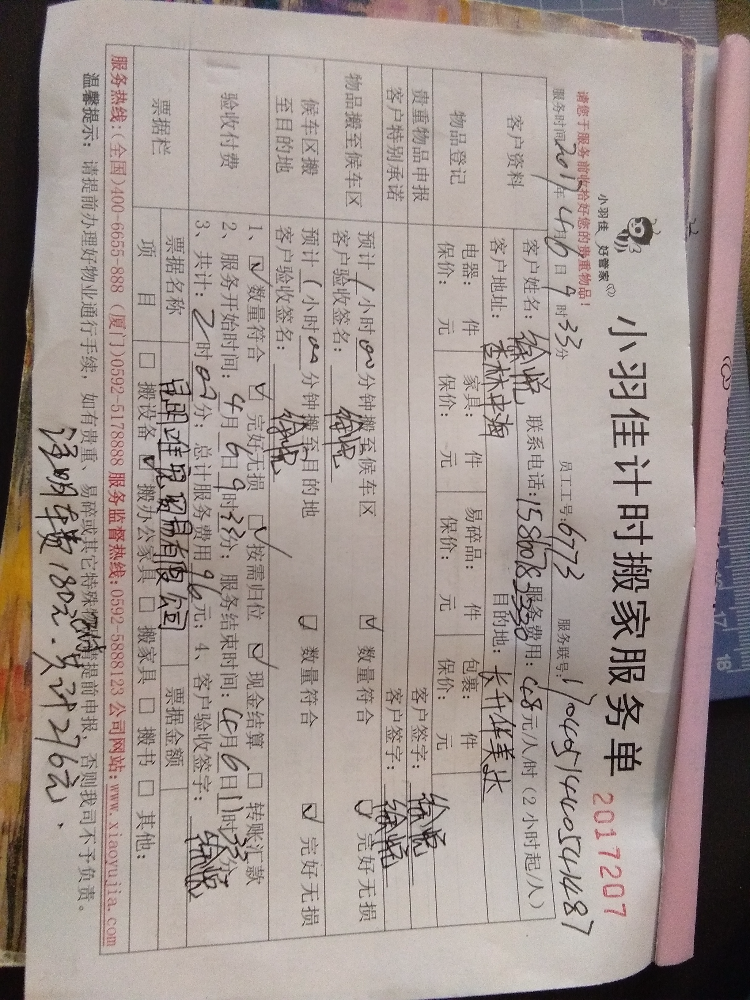 小羽佳 好管家
小羽佳计时搬家服务单
2017207
请您于服务前收拾好您的贵重物品!
服务时间:2017年4月6日9时33分 员工工号:6173 服务联号:
客户资料
客户姓名:徐悦 联系电话: 服务费用:48元/人/时(2小时起/人)
客户地址: 目的地:
物品登记
电器: 件 家具: 件 易碎品: 件 包裹: 件
保价: 元 保价: 元 保价: 元 保价: 元
贵重物品申报 客户签字:徐悦
客户特别承诺 客户签字:徐悦
物品搬至候车区
预计1小时00分钟搬至候车区 ☑数量符合 ☑完好无损
客户验收签名:徐悦
候车区搬至目的地
预计1小时00分钟搬至目的地 ☑数量符合 ☑完好无损
客户验收签名:徐悦
验收付费
1、☑数量符合 ☑完好无损 ☑按需归位 ☑现金结算 □转账汇款
2、服务开始时间:4月6日9时33分;服务结束时间:4月6日11时33分
3、共计:2时00分;总计服务费用96元;4、客户验收签字:徐悦
票据栏
票据名称 票据金额
项目 □搬设备 ☑搬办公家具 □搬家具 □搬书 □其他:
服务热线:(全国)400-6655-888 (厦门)0592-5178888 服务监督热线:0592-5888123 公司网站:www.xiaoyujia.com
温馨提示: 请提前办理好物业通行手续,如有贵重、易碎或其它特殊物品请提前申报,否则我司不予负责。
注明车费180元.共计276元.
17 18